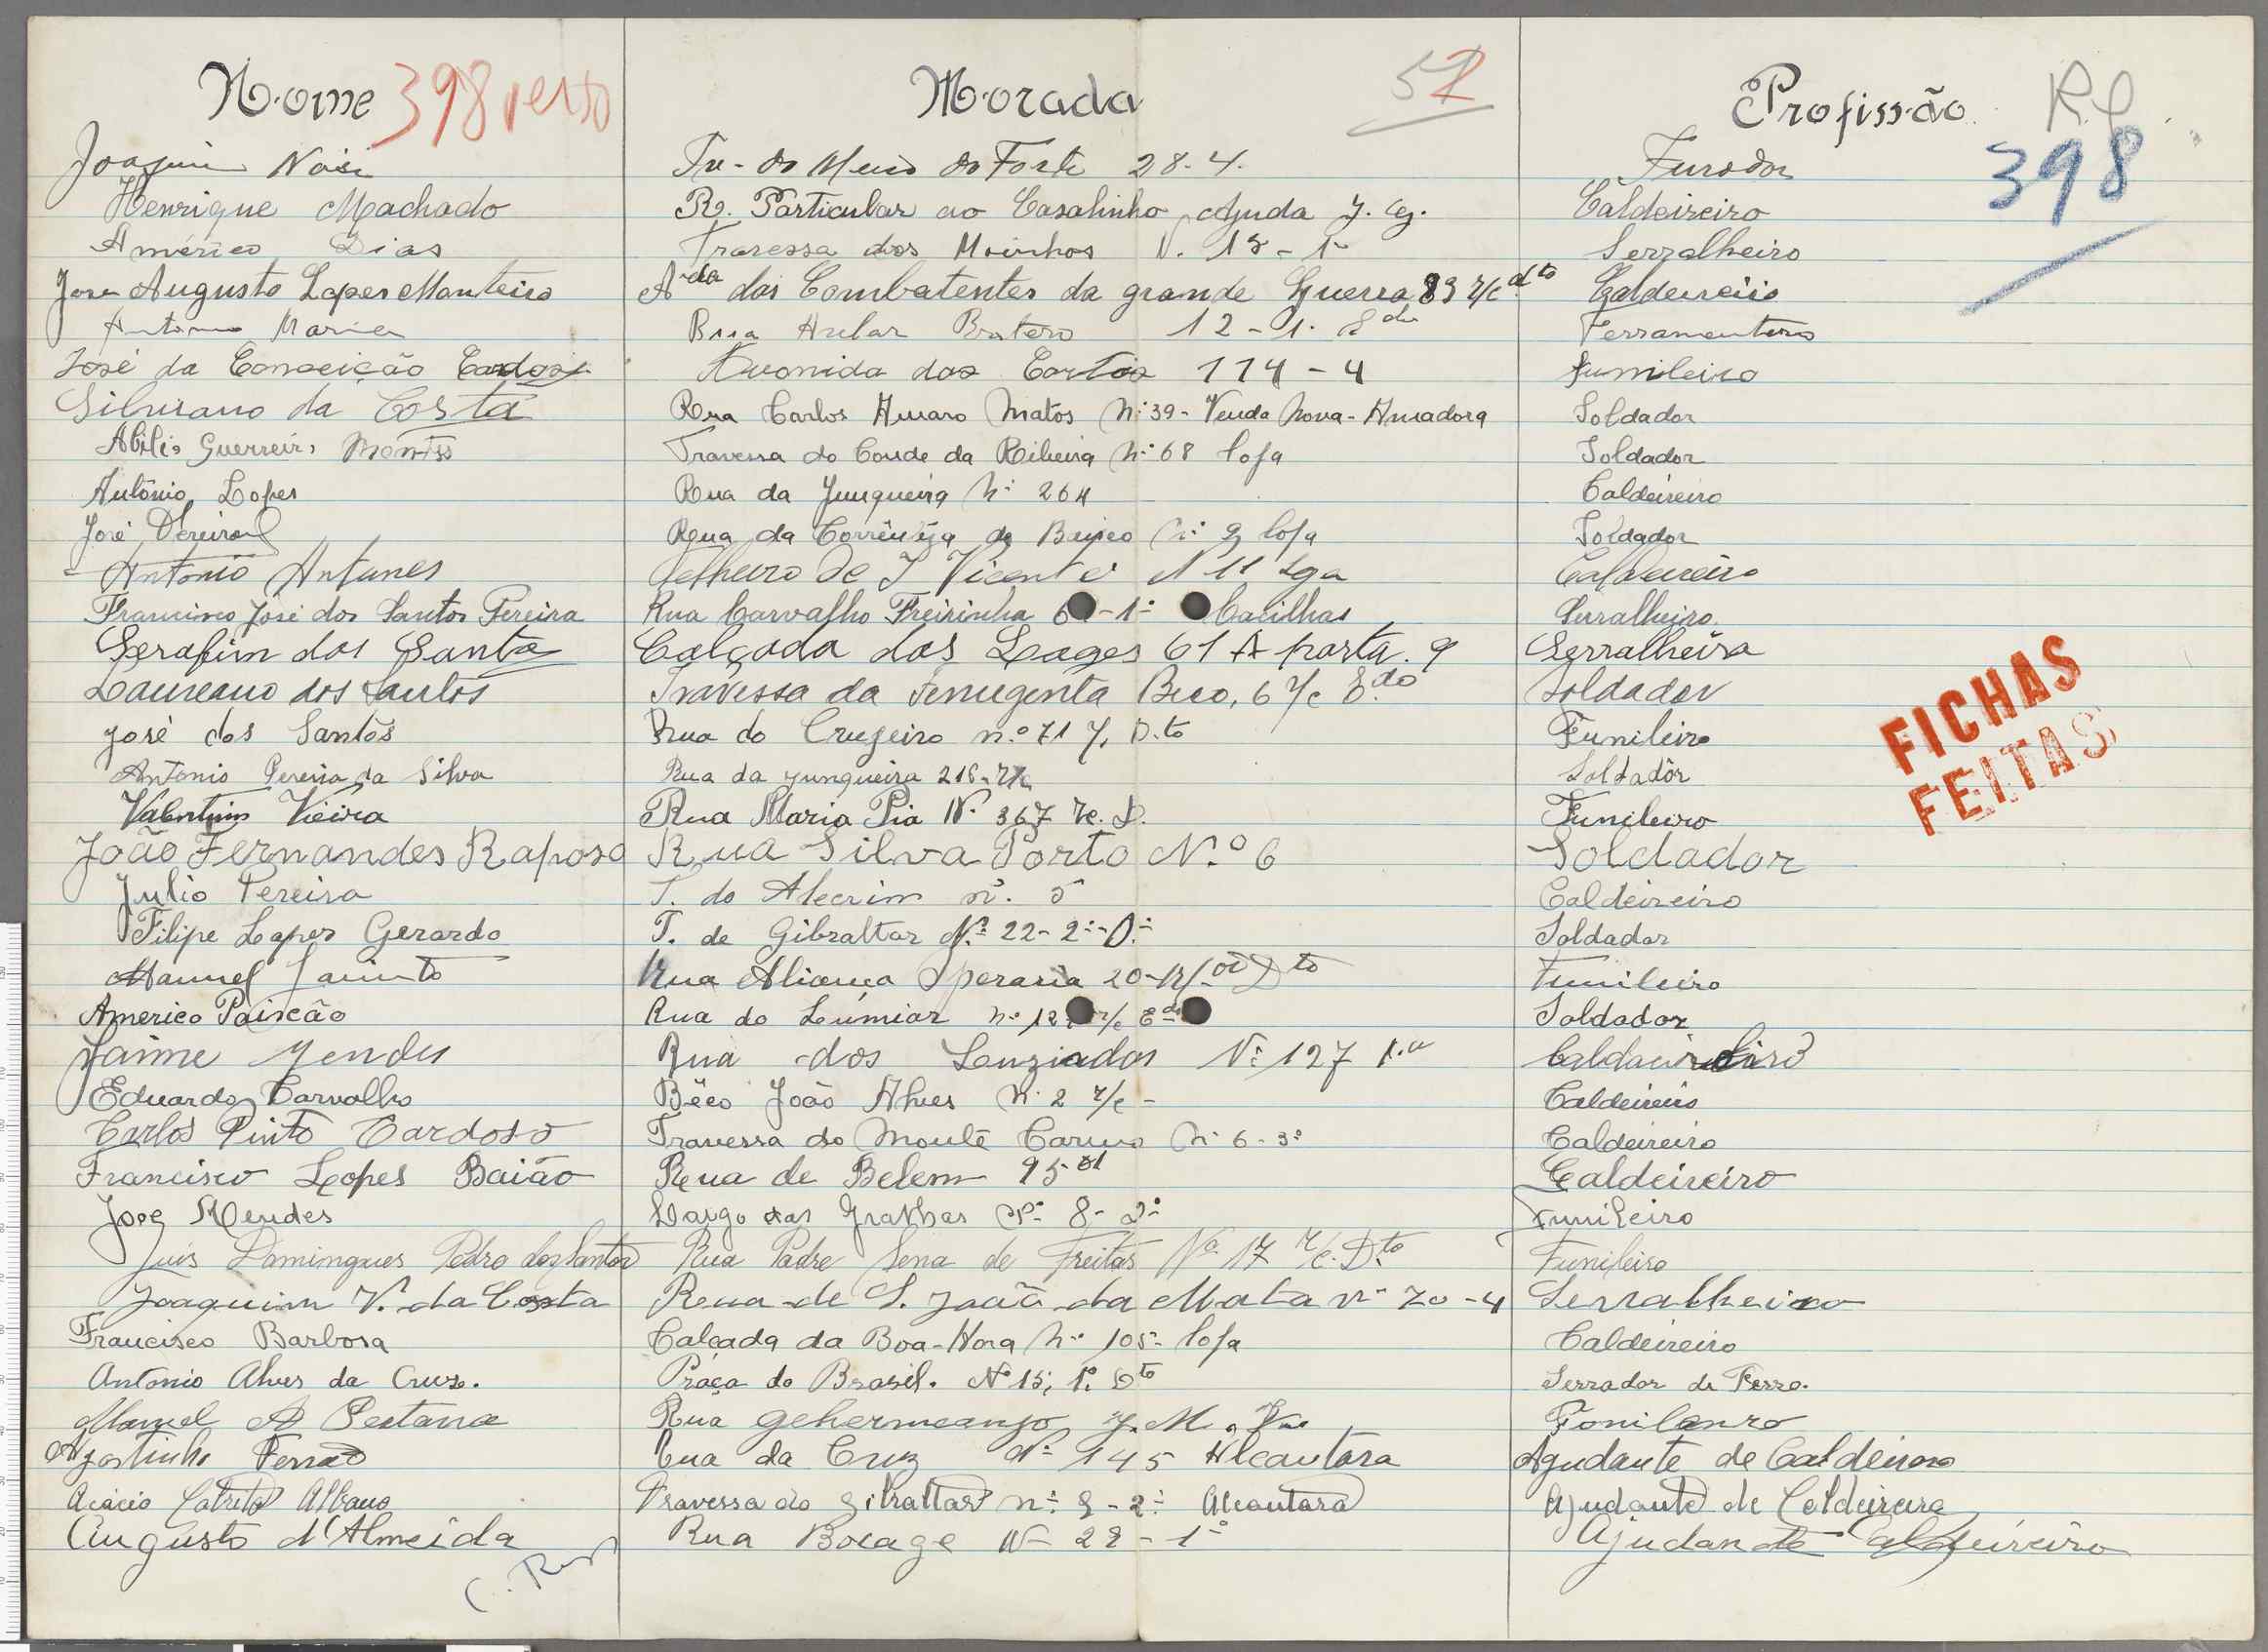 Nome 398 verso Morada 52 Profissão R.
398
Joaquim Tv- do Meio do Forte 28-4. Furador
Henrique Machado R. Particular ao Casalinho Ajuda J. Caldeireiro
Américo Dias Travessa dos Moinhos N. 1 - 1º Serralheiro
José Augusto Lopes Monteiro Ada dos Combatentes da grande Guerra 83 r/c dto Caldeireiro
Antonio Maria Rua 12 - 1. Edo Ferramenteiro
José da Conceição Cardoso Avenida das Cortes 114 - 4 Funileiro
da Costa Rua Carlos Amaro Matos Nº 39 - Venda Nova - Amadora Soldador
Abilio Guerreiro Travessa do Conde da Ribeira Nº 68 loja Soldador
António Lopes Rua da Junqueira Nº 264 Caldeireiro
José Pereira Rua da Nº 9 loja Soldador
Antonio Antunes Telheiro de S Vicente N 11 Lga Caldeireiro
Francisco José dos Santos Pereira Rua Carvalho Freirinha 6 - 1º Cacilhas Serralheiro
Serafim dos Santo Calçada das Lages 61 A porta 9 Serralheiro
Laureano dos Santos Travessa da Beco, 6 r/c Edo Soldador
José dos Santos Rua do Cruzeiro n.º 71 D.to Funileiro
Antonio Pereira da Silva Rua da Junqueira 216- r/c Soldador
Valentim Vieira Rua Maria Pia Nº 367 rc. D. Funileiro
João Fernandes Raposo Rua Silva Porto N.º 6 Soldador
Julio Pereira T. do Alecrim nº. 5 Caldeireiro
Filipe Lopes Gerardo T. de Gibraltar Nº 22 - 2º - D. Soldador
Manuel Jacinto Rua Aliança Operaria 20 - R/ Dto Funileiro
Americo Paixão Rua do Lumiar nº 12 r/c Edo Soldador
Jaime Mendes Rua dos Luziadas Nº 127 Caldeireiro
Eduardo Carvalho Bêco João Alves Nº 2 r/c - Caldeireiro
Carlos Pinto Cardoso Travessa do Monte Carmo Nº 6 - 3º Caldeireiro
Francisco Lopes Baião Rua de Belem 95 Caldeireiro
Jose Mendes Largo das Gralhas Nº 8 - 2º Funileiro
Luis Domingues Pedro dos Santos Rua Padre Sena de Freitas Nº 17 r/c. D.to Funileiro
Joaquim V. da Costa Rua de S. João da Mata nº 70 - 4 Serralheiro
Francisco Barbosa Calçada da Boa-Hora Nº 105 - loja Caldeireiro
Antonio Alves da Cruz. Práça do Brasil. Nº 15, 1º. Dto Serrador de Ferro.
Manuel A Pestana Rua J. M. Fonilenro
Agostinho Ferrão Rua da Cruz Nº 145 Alcantara Agudante de Caldeireiro
Acácio Albano Travessa do Gibraltar nº 9 - 2º Alcantara Ajudante de Caldeireira
Augusto d'Almeida Rua Bocage Nº 29 - 1º Ajudante Caldeireiro
FICHAS
FEITAS